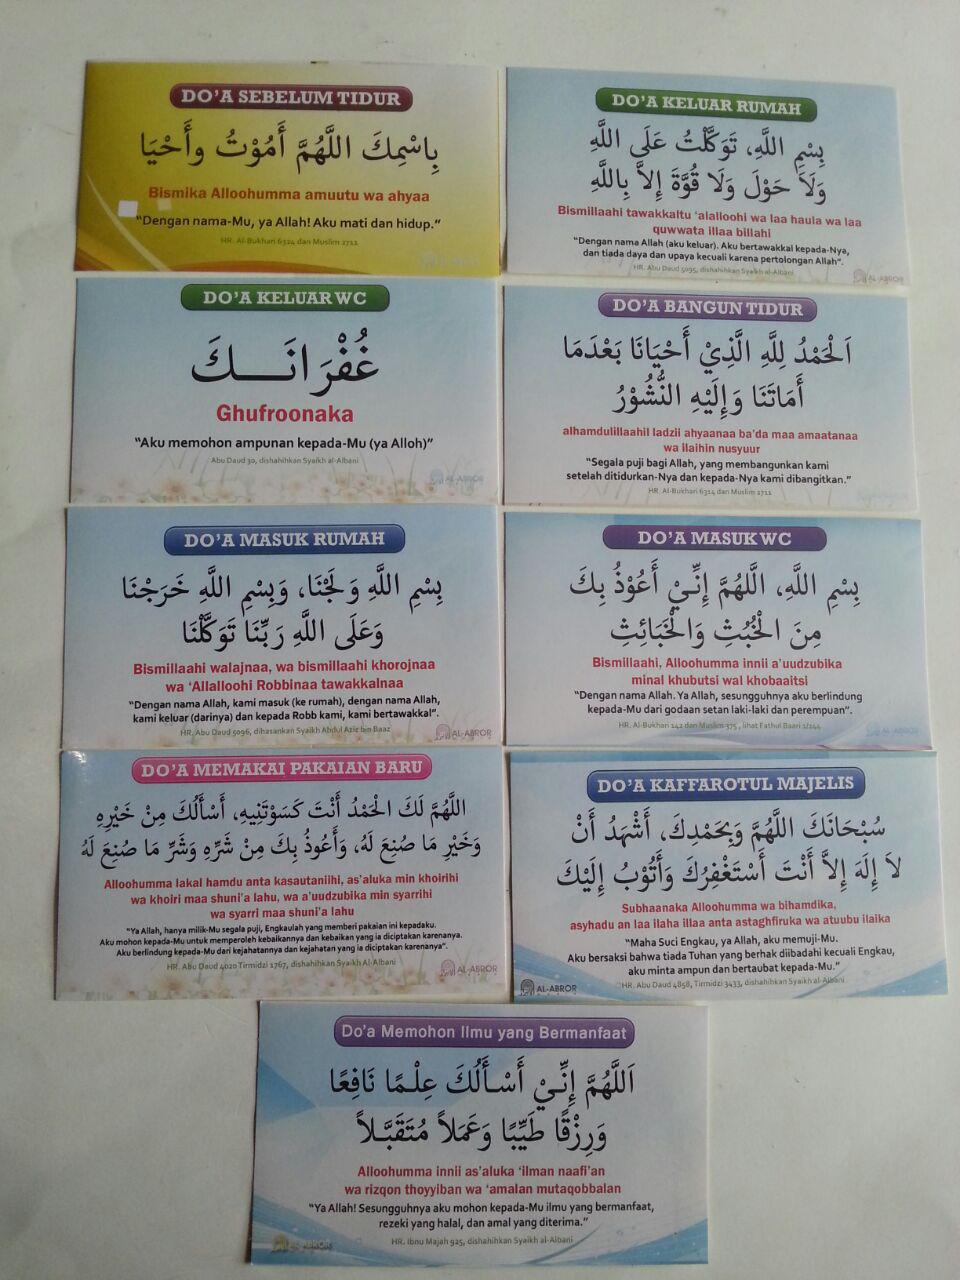 DO'A SEBELUM TIDUR
بِاسْمِكَ اللَّهُمَّ أَمُوْتُ وأَحْيَا
Bismika Alloohumma amuutu wa ahyaa
“Dengan nama-Mu, ya Allah! Aku mati dan hidup.”
HR. Al-Bukhari 6324 dan Muslim 2711
DO'A KELUAR RUMAH
بِسْمِ اللَّهِ، تَوَكَّلْتُ عَلَى اللَّهِ
وَلَا حَوْلَ وَلَا قُوَّةَ إِلاَّ بِاللَّهِ
Bismillaahi tawakkaltu ‘alalloohi wa laa haula wa laa
quwwata illaa billahi
“Dengan nama Allah (aku keluar). Aku bertawakkal kepada-Nya,
dan tiada daya dan upaya kecuali karena pertolongan Allah”.
HR. Abu Daud 5095, dishahihkan Syaikh al-Albani
AL-ABROR
DO'A KELUAR WC
غُفْرَانَــــكَ
Ghufroonaka
“Aku memohon ampunan kepada-Mu (ya Alloh)”
Abu Daud 30, dishahihkan Syaikh al-Albani
AL-ABROR
DO'A BANGUN TIDUR
اَلْحَمْدُ لِلَّهِ الَّذِيْ أَحْيَانَا بَعْدَمَا
أَمَاتَنَا وَإِلَيْهِ النُّشُوْرُ
alhamdulillaahil ladzii ahyaanaa ba'da maa amaatanaa
wa ilaihin nusyuur
“Segala puji bagi Allah, yang membangunkan kami
setelah ditidurkan-Nya dan kepada-Nya kami dibangitkan.”
HR. Al-Bukhari 6314 dan Muslim 2711
DO'A MASUK RUMAH
بِسْمِ اللَّهِ وَلَجْنَا، وَبِسْمِ اللَّهِ خَرَجْنَا
وَعَلَى اللَّهِ رَبِّنَا تَوَكَّلْنَا
Bismillaahi walajnaa, wa bismillaahi khorojnaa
wa ‘Allalloohi Robbinaa tawakkalnaa
“Dengan nama Allah, kami masuk (ke rumah), dengan nama Allah,
kami keluar (darinya) dan kepada Robb kami, kami bertawakkal”.
HR. Abu Daud 5096, dihasankan Syaikh Abdul Aziz bin Baaz
AL-ABROR
DO'A MASUK WC
بِسْمِ اللَّهِ، اللَّهُمَّ إِنِّيْ أَعُوْذُ بِكَ
مِنَ الْخُبُثِ وَالْخَبَائِثِ
Bismillaahi, Alloohumma innii a'uudzubika
minal khubutsi wal khobaaitsi
“Dengan nama Allah. Ya Allah, sesungguhnya aku berlindung
kepada-Mu dari godaan setan laki-laki dan perempuan”.
HR. Al-Bukhari 142 dan Muslim 375, lihat Fathul Baari 1/244
DO'A MEMAKAI PAKAIAN BARU
اللَّهُمَّ لَكَ الْحَمْدُ أَنْتَ كَسَوْتَنِيهِ، أَسْأَلُكَ مِنْ خَيْرِهِ
وَخَيْرِ مَا صُنِعَ لَهُ، وَأَعُوذُ بِكَ مِنْ شَرِّهِ وَشَرِّ مَا صُنِعَ لَهُ
Alloohumma lakal hamdu anta kasautaniihi, as'aluka min khoirihi
wa khoiri maa shuni'a lahu, wa a'uudzubika min syarrihi
wa syarri maa shuni'a lahu
“Ya Allah, hanya milik-Mu segala puji, Engkaulah yang memberi pakaian ini kepadaku.
Aku mohon kepada-Mu untuk memperoleh kebaikannya dan kebaikan yang ia diciptakan karenanya.
Aku berlindung kepada-Mu dari kejahatannya dan kejahatan yang ia diciptakan karenanya”.
HR. Abu Daud 4020 Tirmidzi 1767, dishahihkan Syaikh al-Albani
AL-ABROR
DO'A KAFFAROTUL MAJELIS
سُبْحَانَكَ اللَّهُمَّ وَبِحَمْدِكَ، أَشْهَدُ أَنْ
لاَ إِلَهَ إِلاَّ أَنْتَ أَسْتَغْفِرُكَ وَأَتُوْبُ إِلَيْكَ
Subhaanaka Alloohumma wa bihamdika,
asyhadu an laa ilaha illaa anta astaghfiruka wa atuubu ilaika
“Maha Suci Engkau, ya Allah, aku memuji-Mu.
Aku bersaksi bahwa tiada Tuhan yang berhak diibadahi kecuali Engkau,
aku minta ampun dan bertaubat kepada-Mu.”
HR. Abu Daud 4858, Tirmidzi 3433, dishahihkan Syaikh al-Albani
AL-ABROR
Do'a Memohon Ilmu yang Bermanfaat
اَللَّهُمَّ إِنِّيْ أَسْأَلُكَ عِلْمًا نَافِعًا
وَرِزْقًا طَيِّبًا وَعَمَلاً مُتَقَبَّلاً
Alloohumma innii as'aluka ‘ilman naafi'an
wa rizqon thoyyiban wa ‘amalan mutaqobbalan
“Ya Allah! Sesungguhnya aku mohon kepada-Mu ilmu yang bermanfaat,
rezeki yang halal, dan amal yang diterima.”
HR. Ibnu Majah 925, dishahihkan Syaikh al-Albani
AL-ABROR